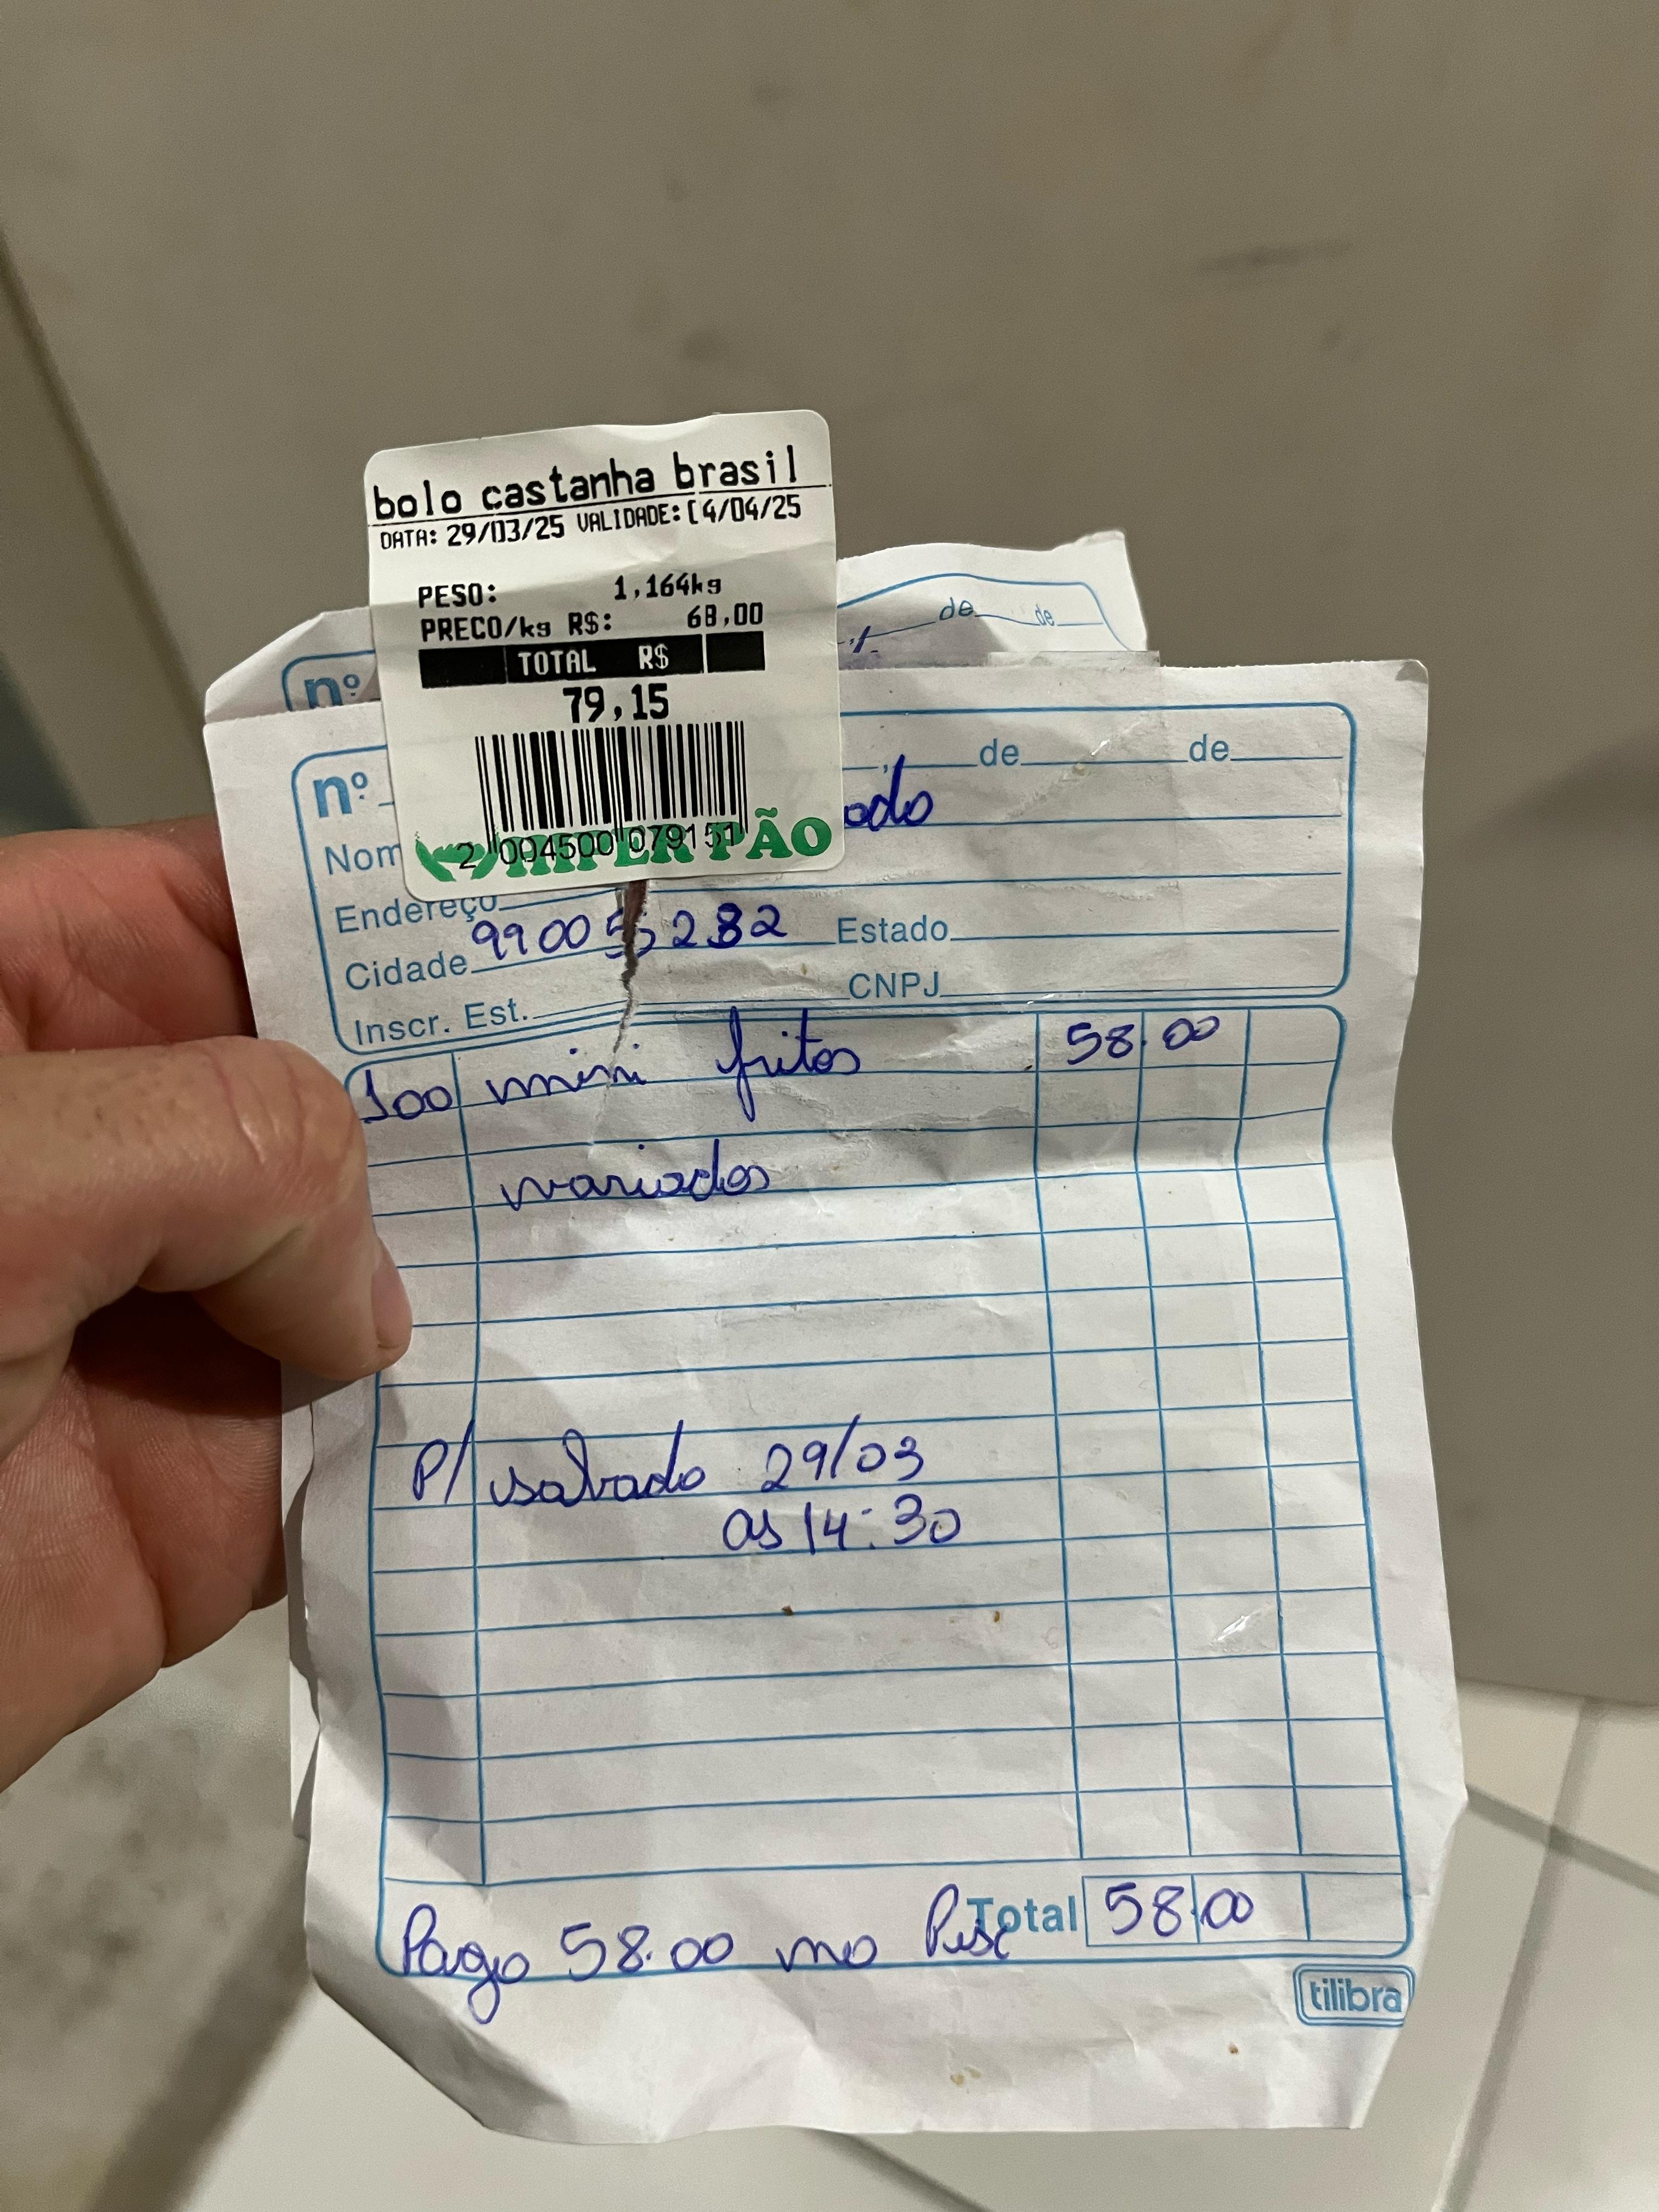 bolo castanha brasil
DATA: 29/03/25 VALIDADE: 04/04/25
PESO: 1,164kg
PRECO/kg R$: 68,00
TOTAL R$
79,15
2 004500 079151
PÃO
de de
nº
nº , de de
Nom ado
Endereço
Cidade 990055282 Estado
Inscr. Est. CNPJ
100 mini fritos 58.00
variados
P/ sabado 29/03
as 14:30
Total 58,00
Pago 58.00 no
tilibra